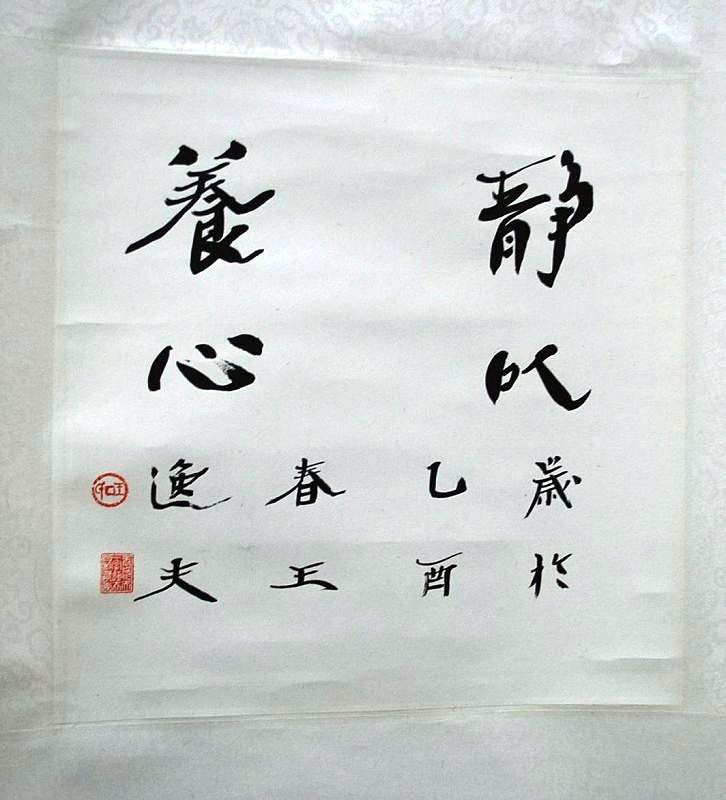 静以
養心
歲於
乙酉
春王
逸夫